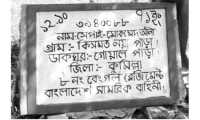 ৩৯৪০০৮৮
নাম-সেপাই-মোকাম্মদ আলী
গ্রাম:- কিসমত নয় পাড়া
ডাকঘর:- গোয়াল পাড়া
জিলা:- কুমিল্লা
৮ নং বেংগল রেজিমেন্ট
বাংলাদেশ সামরিক বাহিনী